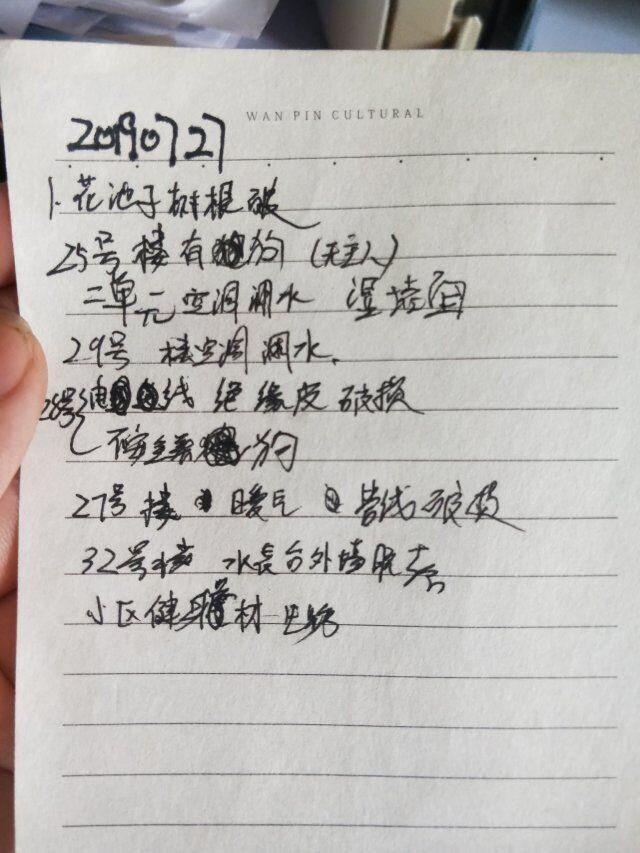 WAN PIN CULTURAL
20190727
1. 花池子树根破
25号楼有狗(无主人)
二单元空调漏水 湿墙面
29号 楼空调漏水.
28号 电线 绝缘皮破损
狗
27号楼 暖气 管线破损
32号楼 水表台外墙脱落
小区健身器材 生锈